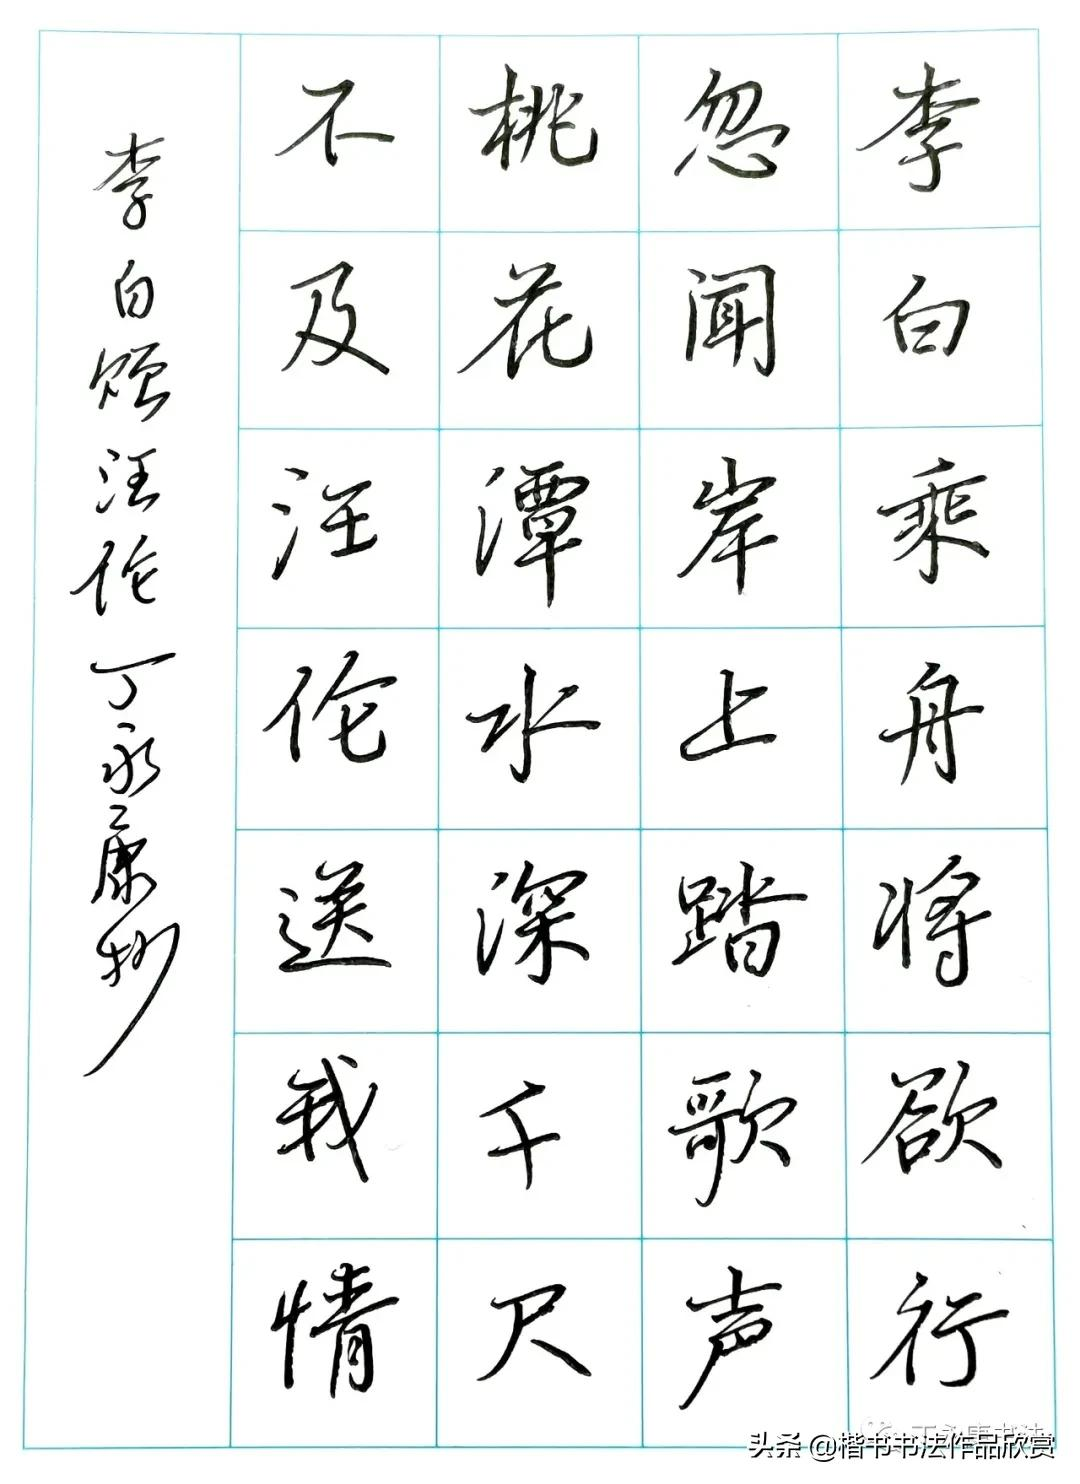 李白乘舟将欲行
忽闻岸上踏歌声
桃花潭水深千尺
不及汪伦送我情
李白赠汪伦丁永康抄
丁永康书法
头条 @楷书书法作品欣赏